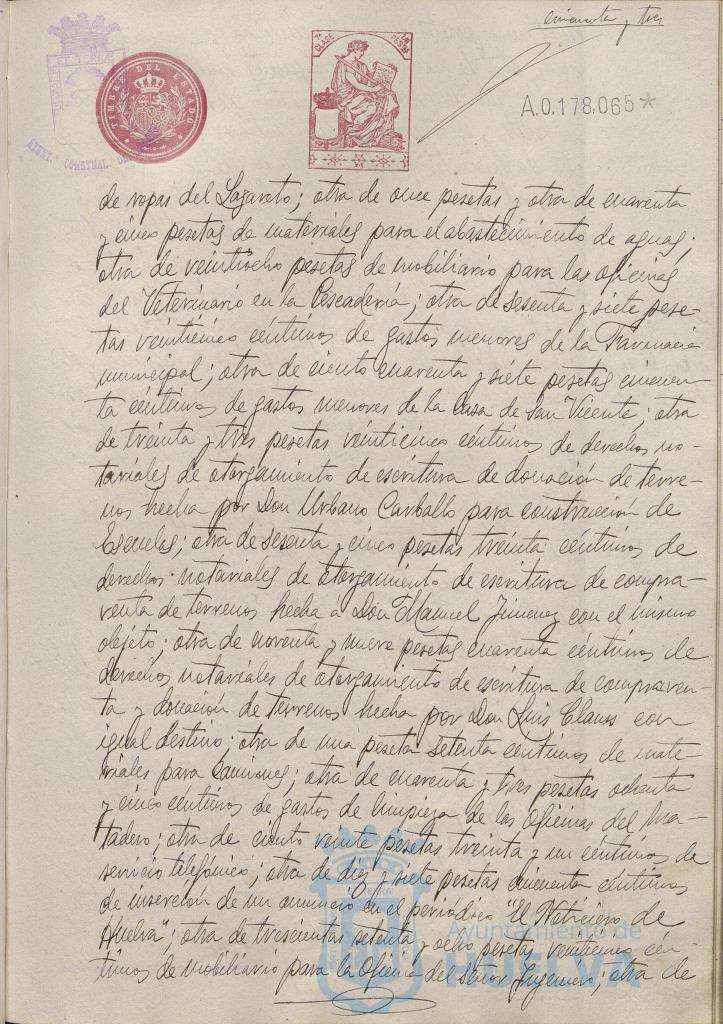 cincuenta y tres
TIMBRE DEL ESTADO
7ª CLASE
PESTAS
A.0.178,065*
AYUNT. CONSTNAL. DE
de ropas del Lazareto; otra de once pesetas y otra de cuarenta
y cinco pesetas de materiales para el abastecimiento de aguas;
otra de veintiocho pesetas de mobiliario para las oficinas
del Veterinario en la Pescadería; otra de sesenta y siete pese-
tas veinticinco céntimos de gastos menores de la Farmacia
municipal; otra de ciento cuarenta y siete pesetas cincuen-
ta céntimos de gastos menores de la Casa de San Vicente; otra
de treinta y tres pesetas veinticinco céntimos de derechos no-
tariales de otorgamiento de escritura de donación de terre-
nos hecha por Don Urbano Carballo para construcción de
Escuelas; otra de sesenta y cinco pesetas treinta céntimos de
derechos notariales de otorgamiento de escritura de compra-
venta de terrenos hecha a Don Manuel Jimenez con el mismo
objeto; otra de noventa y nueve pesetas cuarenta céntimos de
derechos notariales de otorgamiento de escritura de compraven-
ta y donación de terrenos hecha por Don Luis Clauss con
igual destino; otra de una peseta setenta céntimos de mate-
riales para Caminos; otra de cuarenta y tres pesetas ochenta
y cinco céntimos de gastos de limpieza de las oficinas del Ma-
tadero; otra de ciento veinte pesetas treinta y un céntimos de
servicio telefónico; otra de diez y siete pesetas cincuenta céntimos
de inserción de un anuncio en el periódico "El Noticiero de
Huelva"; otra de trescientas setenta y ocho pesetas veinticinco cén-
timos de mobiliario para la Oficina del Señor Ingeniero; otra de
Ayuntamiento de
HUELVA